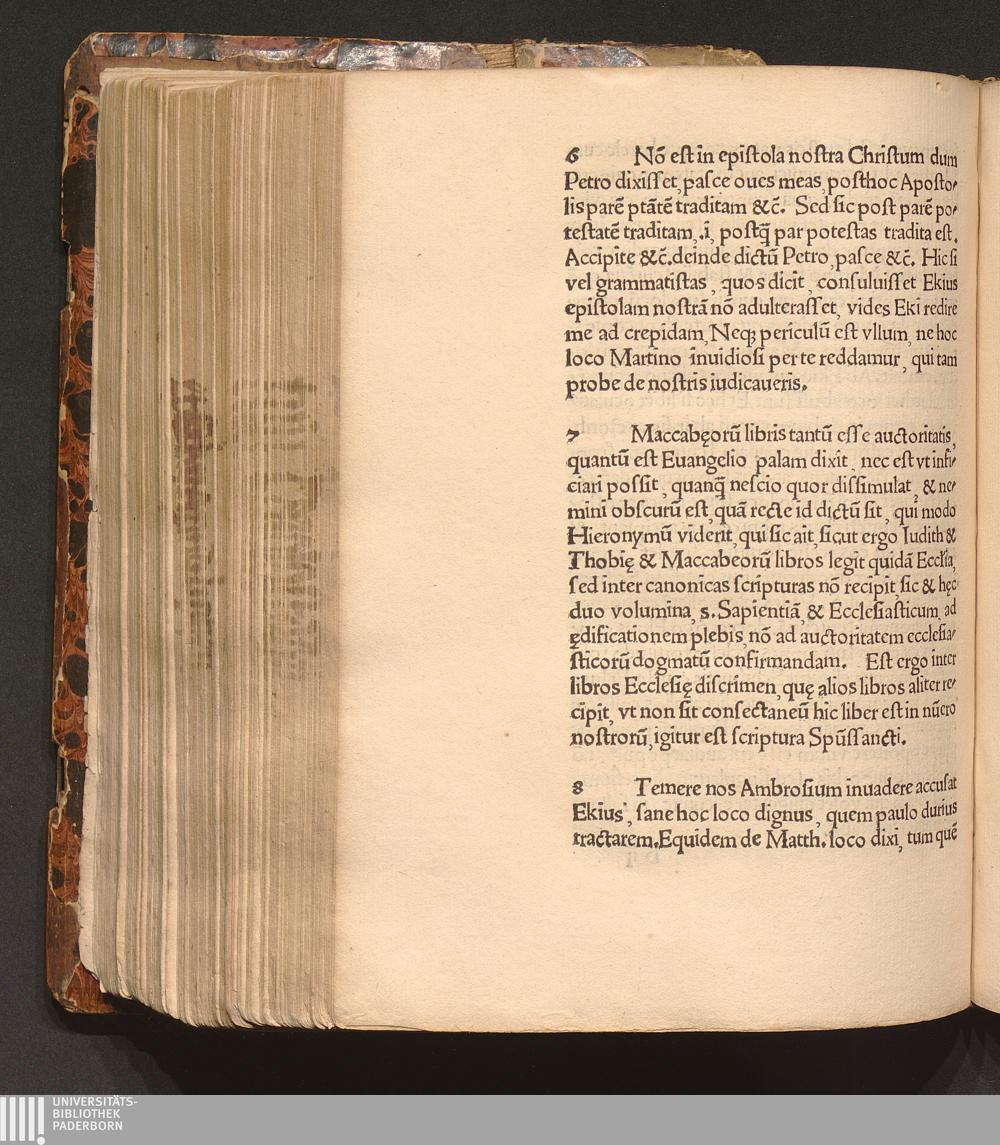 6 Nō eſt in epiſtola noſtra Chriſtum dum
Petro dixiſſet, paſce oues meas, poſthoc Apoſto⸗
lis parē ptātē traditam &c̄. Sed ſic poſt parē po⸗
teſtatē traditam, .i, poſtq̄ par poteſtas tradita eſt.
Accipite &c̄. deinde dictū Petro, paſce &c̄. Hic ſi
vel grammatiſtas, quos dicit, conſuluiſſet Ekius
epiſtolam noſtrā nō adulteraſſet, vides Eki redire
me ad crepidam, Neqꝫ periculū eſt vllum, ne hoc
loco Martino inuidioſi per te reddamur, qui tam
probe de noſtris iudicaueris.
7 Maccabęorū libris tantū eſſe auctoritatis,
quantū eſt Euangelio palam dixit, nec eſt vt infi⸗
ciari poſſit, quanq̄ neſcio quor diſſimulat, & ne⸗
mini obſcurū eſt, quā recte id dictū ſit, qui modo
Hieronymū viderit, qui ſic ait, ſicut ergo Iudith &
Thobię & Maccabeorū libros legit quidā Eccľia,
ſed inter canonicas ſcripturas nō recipit, ſic & hęc
duo volumina, s. Sapientiā, & Eccleſiaſticum, ad
ędificationem plebis, nō ad auctoritatem eccleſia⸗
ſticorū dogmatū confirmandam. Eſt ergo inter
libros Eccleſię diſcrimen, quę alios libros aliter re⸗
cipit, vt non ſit conſectaneū hic liber eſt in nūero
noſtrorū, igitur eſt ſcriptura Spūſſancti.
8 Temere nos Ambroſium inuadere accuſat
Ekius, ſane hoc loco dignus, quem paulo durius
tractarem. Equidem de Matth. loco dixi, tum quē
UNIVERSITÄTS-
BIBLIOTHEK
PADERBORN